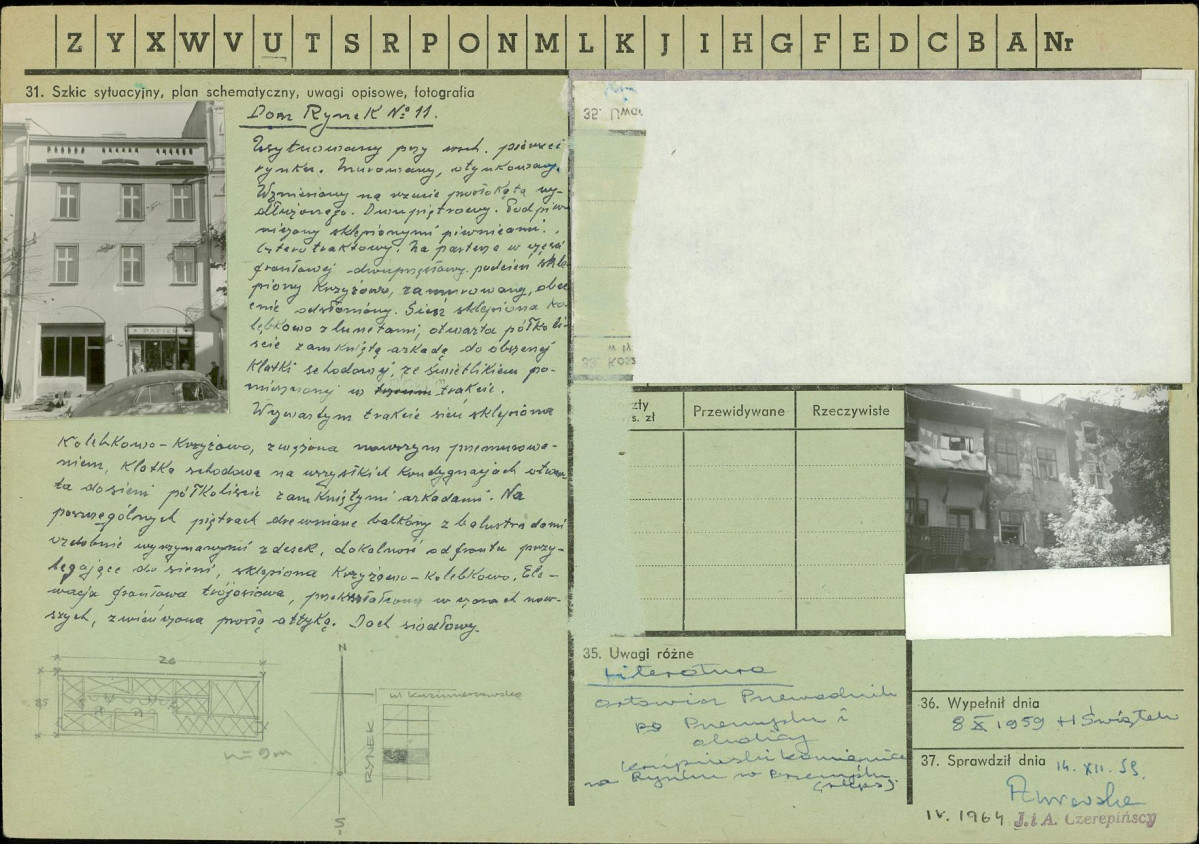 Z Y X W V U T S R P O N M L K J I H G F E D C B A Nr
31. Szkic sytuacyjny, plan schematyczny, uwagi opisowe, fotografia
Dom Rynek Nº 11.
Usytuowany przy wsch. pierzei
rynku. Murowany, otynkowany.
Wzniesiony na rzucie prostokąta wy-
dłużonego. Dwupiętrowy. Podpiw-
niczony sklepionymi piwnicami.
Czterotraktowy. Na parterze w części
frontowej dwuprzęsłowy podcień skle-
piony krzyżowo, zamurowany, obec
enie odsłonięty. Sień sklepiona ko-
lebkowo z lunetami, otwarta półkoli-
ście zamkniętą arkadą do obszernej
klatki schodowej, ze świetlikiem po-
mieszczonej w trakcie.
W czwartym trakcie sień sklepiona
Kolebkowo-Krzyżowo, zwężona nowszym przemurowa-
niem, Klatka schodowa na wszystkich kondygnacjach otwar-
ta do sieni półkoliście zamkniętymi arkadami. Na
poszczególnych piętrach drewniane balkony z balustradami
ozdobnie wyrzynanymi z desek. Lokalność od frontu przy-
legające do sieni, sklepiona Krzyżowo-Kolebkowo. Ele-
wacja frontowa trójosiowa, przekształcona w czasach now-
szych, zwieńczona prostą attyką. Dach siodłowy.
PAPIER
26
h=9m
N
S
RYNEK
ul Kazimierzowska
35. Uwa
33. Kosz
w ty
zty
s. zł
Przewidywane
Rzeczywiste
35. Uwagi różne
Literatura
Orłowicz Przewodnik
po Przemyślu i
okolicy
Krupieski Kamienice
na Rynku w Przemyślu
(rkps)
36. Wypełnił dnia
8 X 1959 H Świątek
37. Sprawdził dnia 14. XII. 59.
IV. 1964 J. i A. Czerepińscy